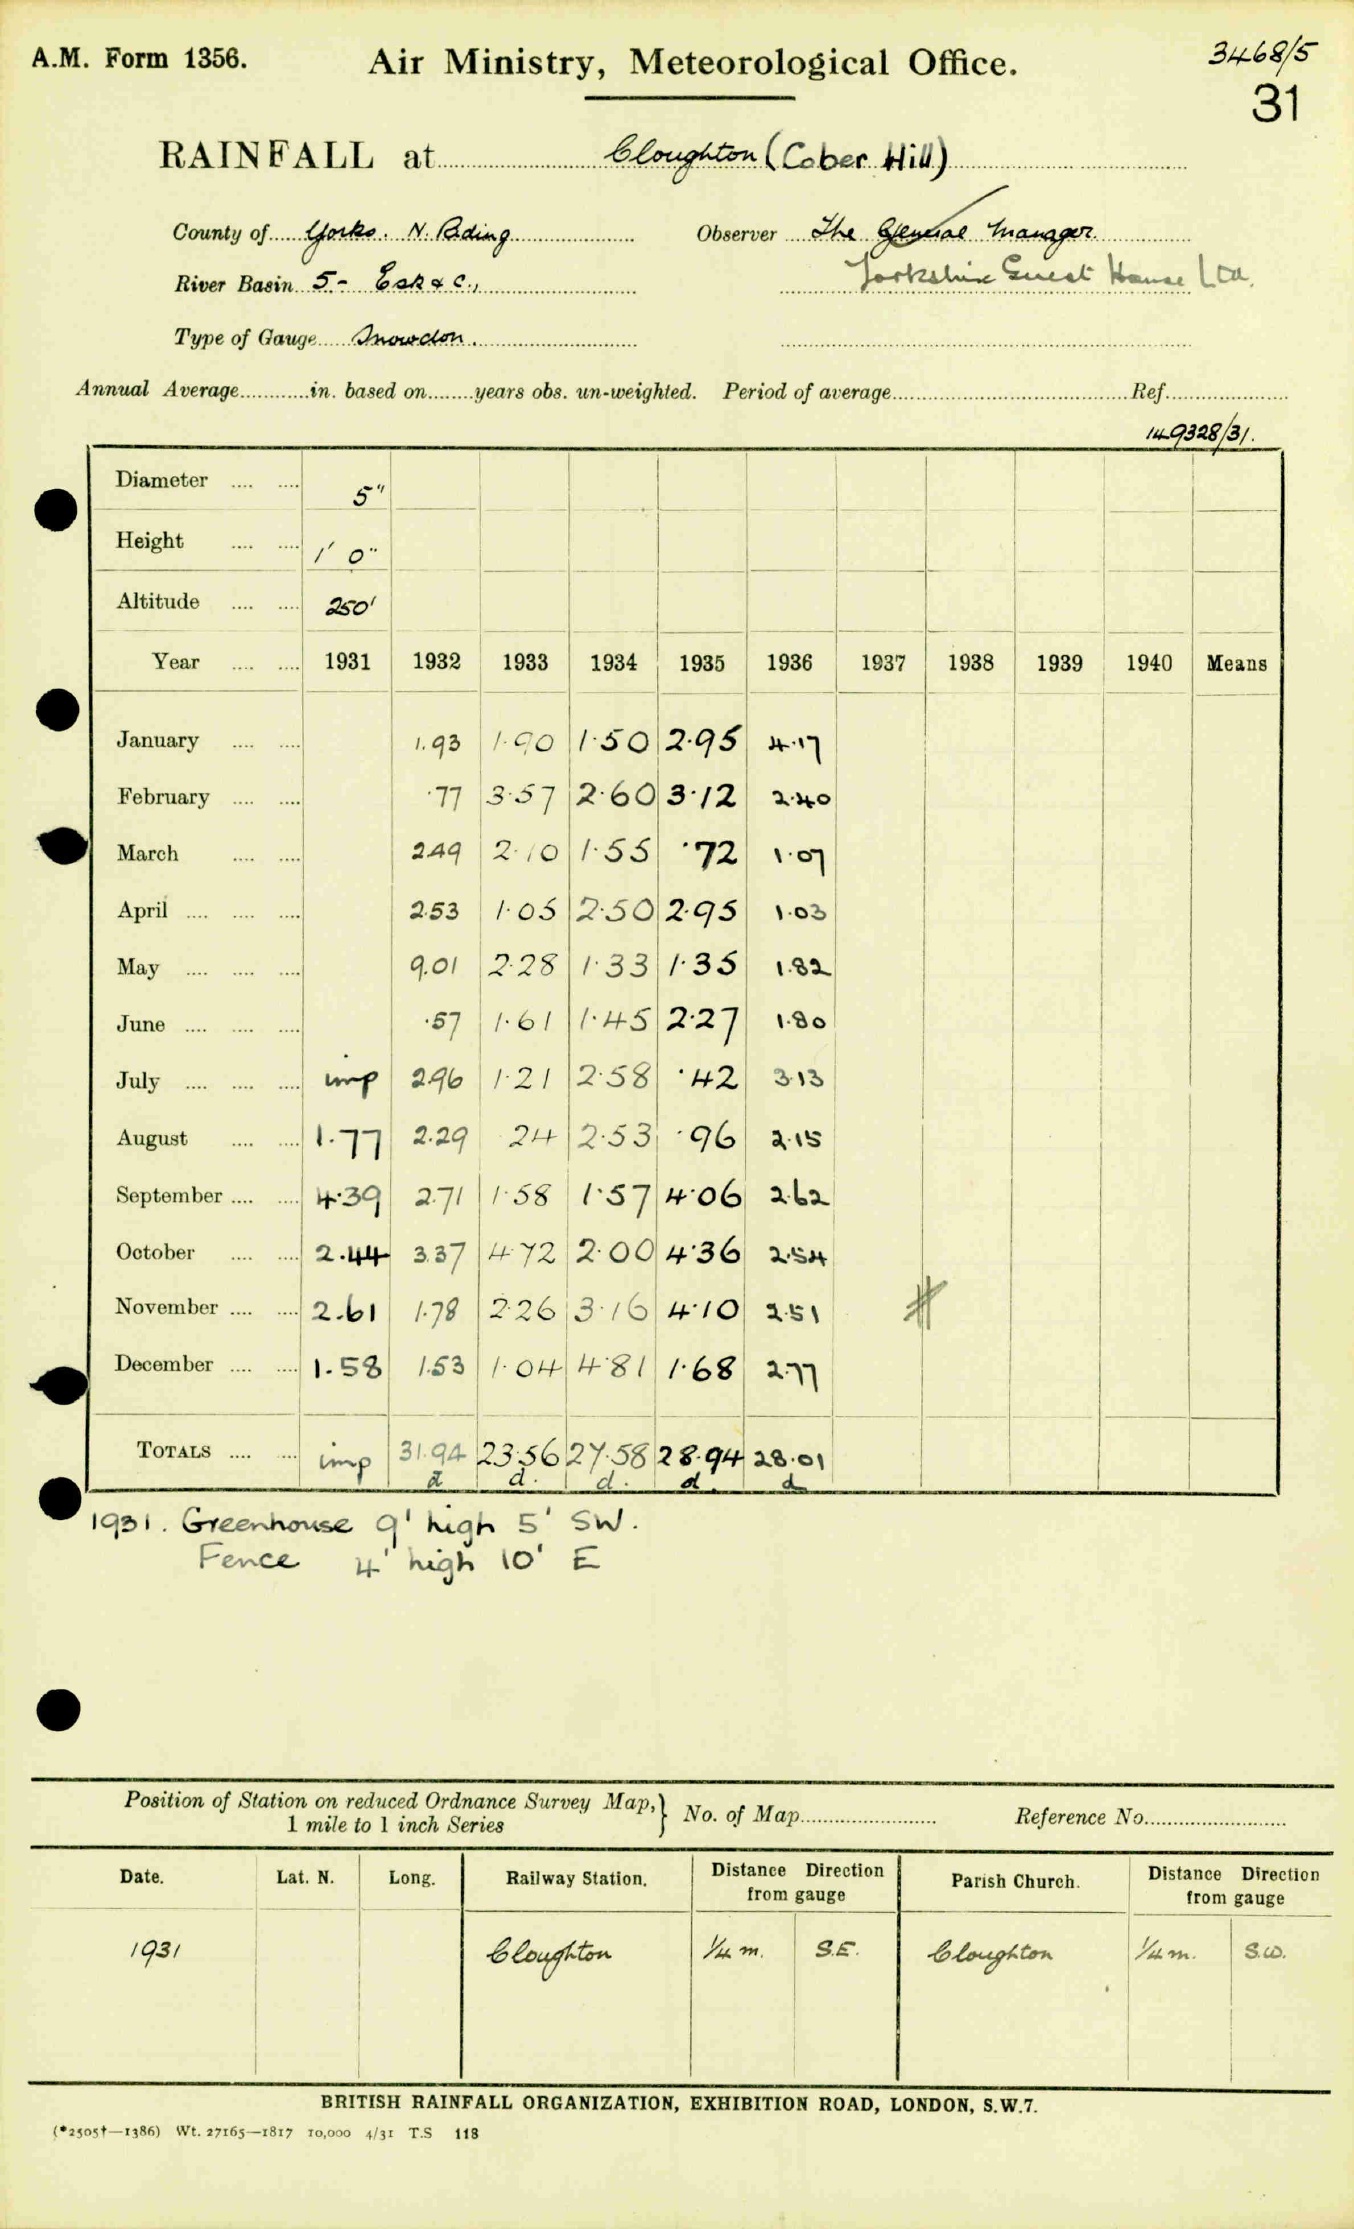 A.M. Form 1356.
Air Ministry, Meteorological Office.
3468/5
31
RAINFALL at Cloughton (Cober Hill)
County of Yorks. N. Riding Observer The General Manager.
River Basin 5.- Esk & c., Yorkshire Guest House Ltd.
Type of Gauge Snowdon.
Annual Average in. based on years obs. un-weighted. Period of average Ref.
149328/31.
Diameter 5"
Height 1' 0"
Altitude 250'
Year 1931 1932 1933 1934 1935 1936 1937 1938 1939 1940 Means
January 1.93 1.90 1.50 2.95 4.17
February .77 3.57 2.60 3.12 2.40
March 2.49 2.10 1.55 .72 1.07
April 2.53 1.05 2.50 2.95 1.03
May 9.01 2.28 1.33 1.35 1.82
June .57 1.61 1.45 2.27 1.80
July imp 2.96 1.21 2.58 .42 3.13
August 1.77 2.29 24 2.53 .96 2.15
September 4.39 2.71 1.58 1.57 4.06 2.62
October 2.44 3.37 4.72 2.00 4.36 2.54
November 2.61 1.78 2.26 3.16 4.10 2.51
December 1.58 1.53 1.04 4.81 1.68 2.77
TOTALS imp 31.94 23.56 27.58 28.94 28.01
d d. d. d. d
1931. Greenhouse 9' high 5' SW.
Fence 4' high 10' E
Position of Station on reduced Ordnance Survey Map, } No. of Map Reference No.
1 mile to 1 inch Series
Date. Lat. N. Long. Railway Station. Distance Direction Parish Church. Distance Direction
from gauge from gauge
1931 Cloughton 1/4 m. S.E. Cloughton 1/4 m. S.W.
BRITISH RAINFALL ORGANIZATION, EXHIBITION ROAD, LONDON, S.W.7.
(*2505†—1386) Wt. 27165—1817 10,000 4/31 T.S 118